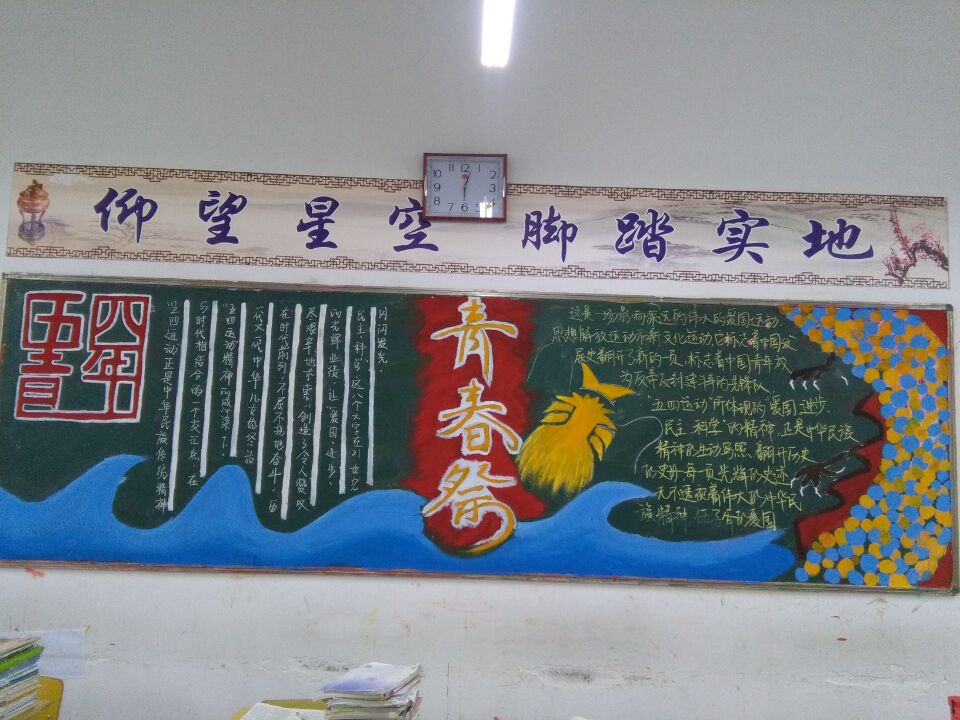 仰望星空 脚踏实地
五四青年
“五四运动正是中华民族传统精神
与时代相结合的一个交汇点。在
“五四运动”精神的感染下,
一代又一代中华儿女始终站
在时代前列,不屈不挠地奋斗,历
尽艰辛地求索,创造了令人赞叹
的光辉业绩,让“爱国、进步、
民主、科学”这八个大字在21世纪
闪闪发光.
青春祭
这是一场影响深远的伟大的爱国运动、
思想解放运动和新文化运动,它标志着中国发
展史翻开了新的一页,标志着中国青年成
为反帝反封建斗争的先锋队
“五四运动”所体现的“爱国 进步
民主 科学”的精神 正是中华民族
精神的生动写照 翻开历史
的史册,每一页光辉的史迹
无不透视着伟大的中华民
族精神 爱国